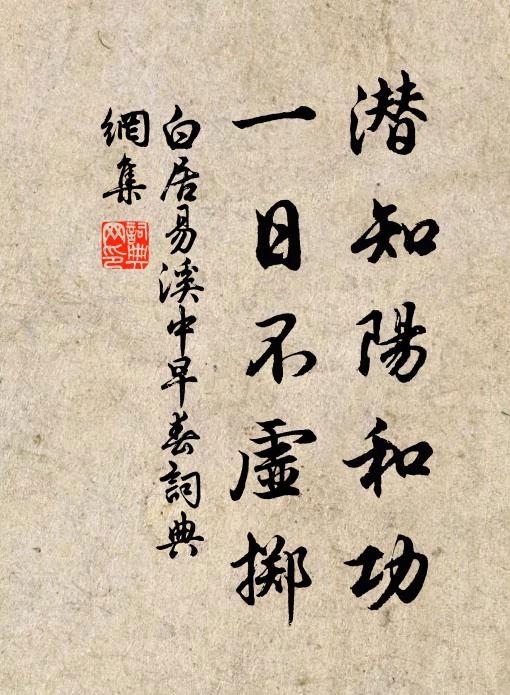 潛知陽和功
一日不虛擲
白居易溪中早春詞典
網集
詞典
网印